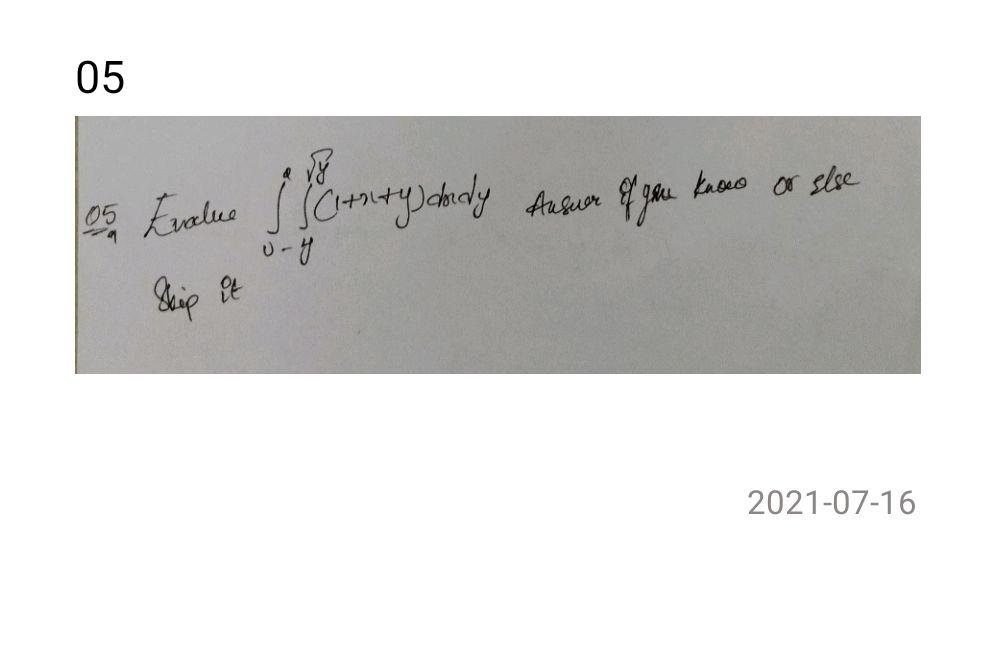 05
05 Evalue ∫ ∫ (1+x+y) dxdy Answer if you know or else
√y
0 - y
Skip it
2021-07-16